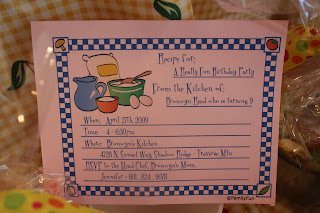 Recipe For:
A Really Fun Birthday Party
From the Kitchen of:
Bronwyn Reed who is turning 9
When: April 25th, 2009
Time: 4 - 6:30pm
Where: Bronwyn's Kitchen
4728 N Sunset Way Shadow Ridge -
RSVP to the Head Chef, Bronwyn's Mom,
Jennifer - 801 824
©FamilyFun